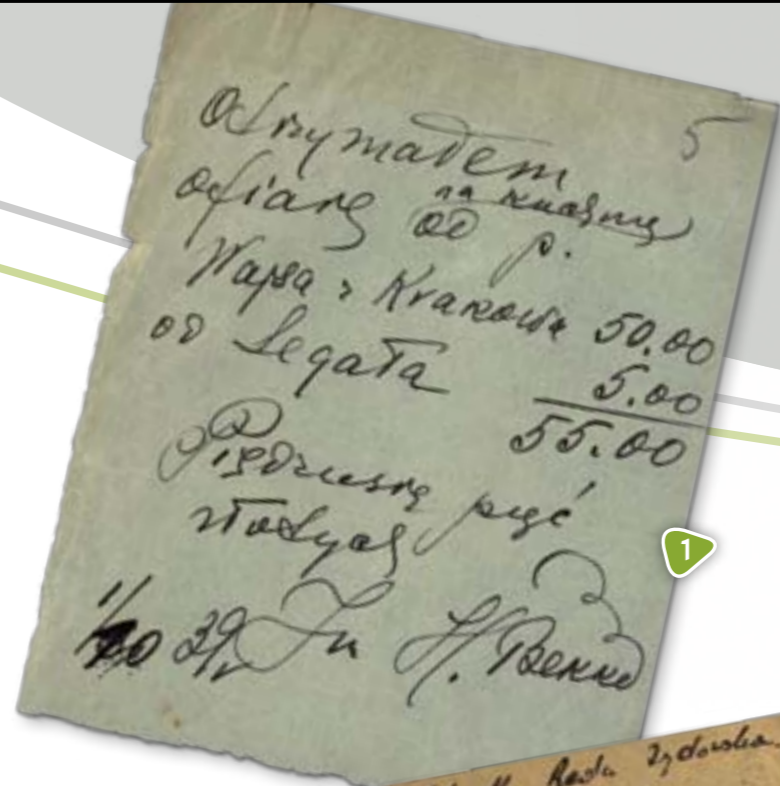 5
Otrzymałem
ofiarę na kuchnię od p.
Wajsa z Krakowa 50.00
od Legata 5.00
55.00
Pięćdziesię pięć
złotych
1/10 39 r. Inż H.
1
Rada Żydowska